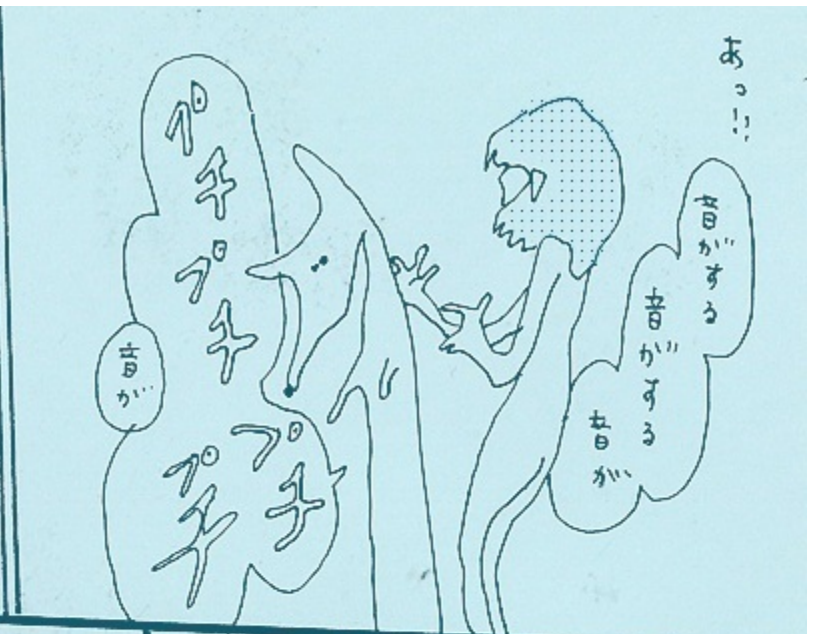 あっ!!
音がする
音がする
音が
プチ
プチ
プチ
プチ
音が